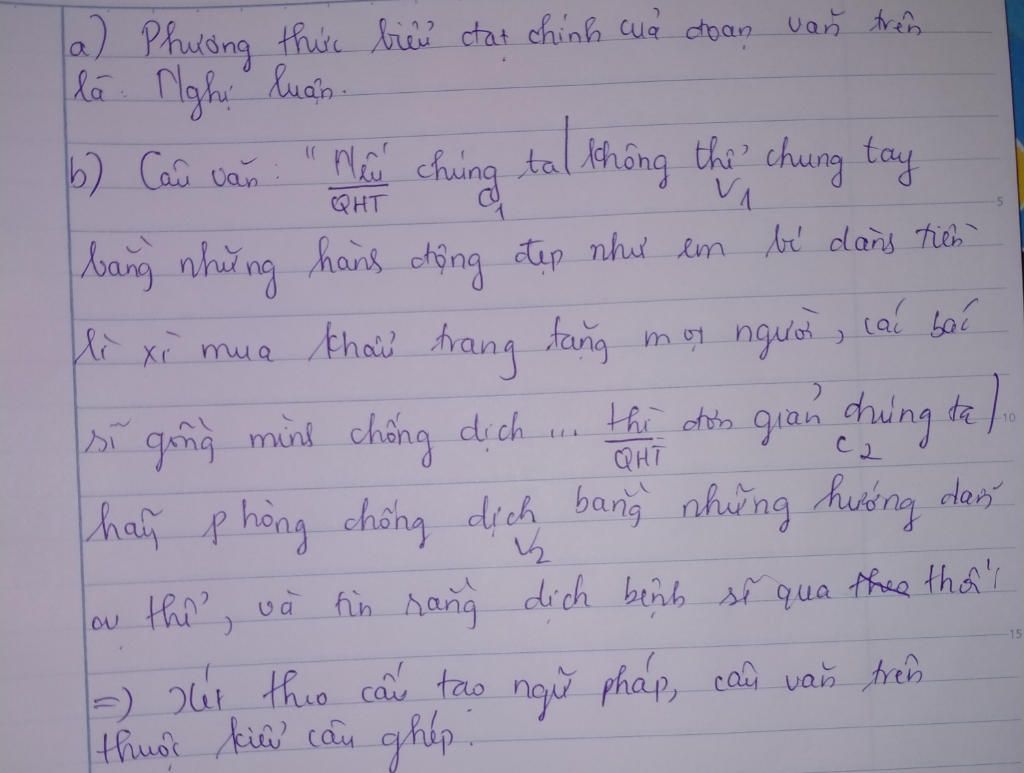 a) Phương thức biểu đạt chính của đoạn văn trên
là: Nghị luận.
b) Câu văn: "Nếu chúng ta | không thể chung tay
QHT C1 V1
bằng những hành động đẹp như em bé dành tiền
lì xì mua khẩu trang tặng mọi người, các bác
sĩ gồng mình chống dịch ... thì đơn giản chúng ta |
QHT C2
hãy phòng chống dịch bằng những hướng dẫn
V2
cụ thể, và tin rằng dịch bệnh sẽ qua thôi!
=) Xét theo cấu tạo ngữ pháp, câu văn trên
thuộc kiểu câu ghép.
5
10
15